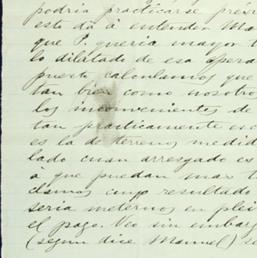 podria practicarse prévi
esta dá á entender Ma
que P. queria mayor t
lo dilatado de esa opera
puerta calculamos que
tan bien como nosotro
los inconvenientes de
tan practicamente
es la de terrenos medid
lado cuan arresgado es
á que puedan mas t
císmos cuyo resultado
seria meternos en plei
el pago. Veo sin embarg
(segun dice Manuel) se